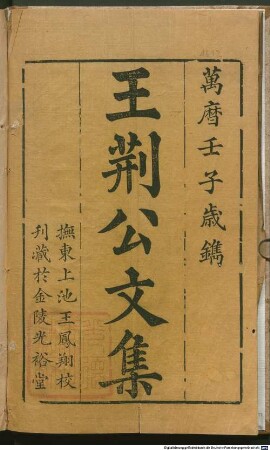 萬曆壬子歲鐫
王荆公文集
撫東上池王鳳翔校
刋藏於金陵光裕堂